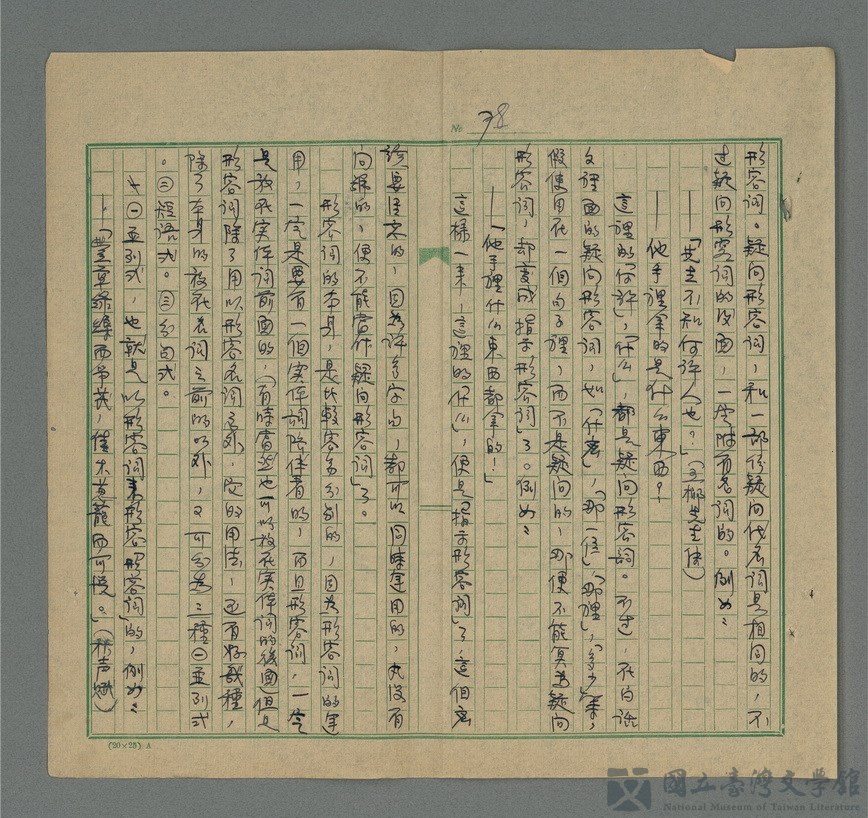 № 38
形容詞。疑问形容词，和一部份疑问代名词是相同的，不
过疑问形容词的后面，一定附有名词的。例如：
——「先生不知何许人也？」（五柳先生传）
——他手裡拿的是什么東西？
這裡的「何许」，「什么」，都是疑问形容詞。不过，在白話
文裡面的疑问形容词，如「什麽」，「那一個」「那裡」，「多少」等，
假使用在一個句子裡，而不是疑问的，那便不能算為疑问
形容词，却变成「指示形容词」了。例如：
——「他手裡什么東西都拿的！」
這樣一来，這裡的「什么」，便是「指示形容词」了，這個
該要注意的，因為许多字句，都可以同時運用的，
问號的，便不能當作「疑问形容词」了。
形容词的本身，是比較容易分别的，因為形容词的運
用，一定是要有一個实体詞陪伴着的，而且形容词，一定
是放在实体词前面的，（有時當然也可以放在实体词的後面）但是
形容词除了用以形容名词之外，它的用法，还有好幾種，
除了本身的放在名词之前的以外，又可分為三種㊀並列式
。㊁短語式。㊂分句式。
㊀並列式，也就是以形容词来形容「形容词」的，例如：
——「豐草綠縟而爭茂，佳木葱蘢而可悦。」（秋声赋）
(20×25) A
國立臺灣文學館
National Museum of Taiwan Literature